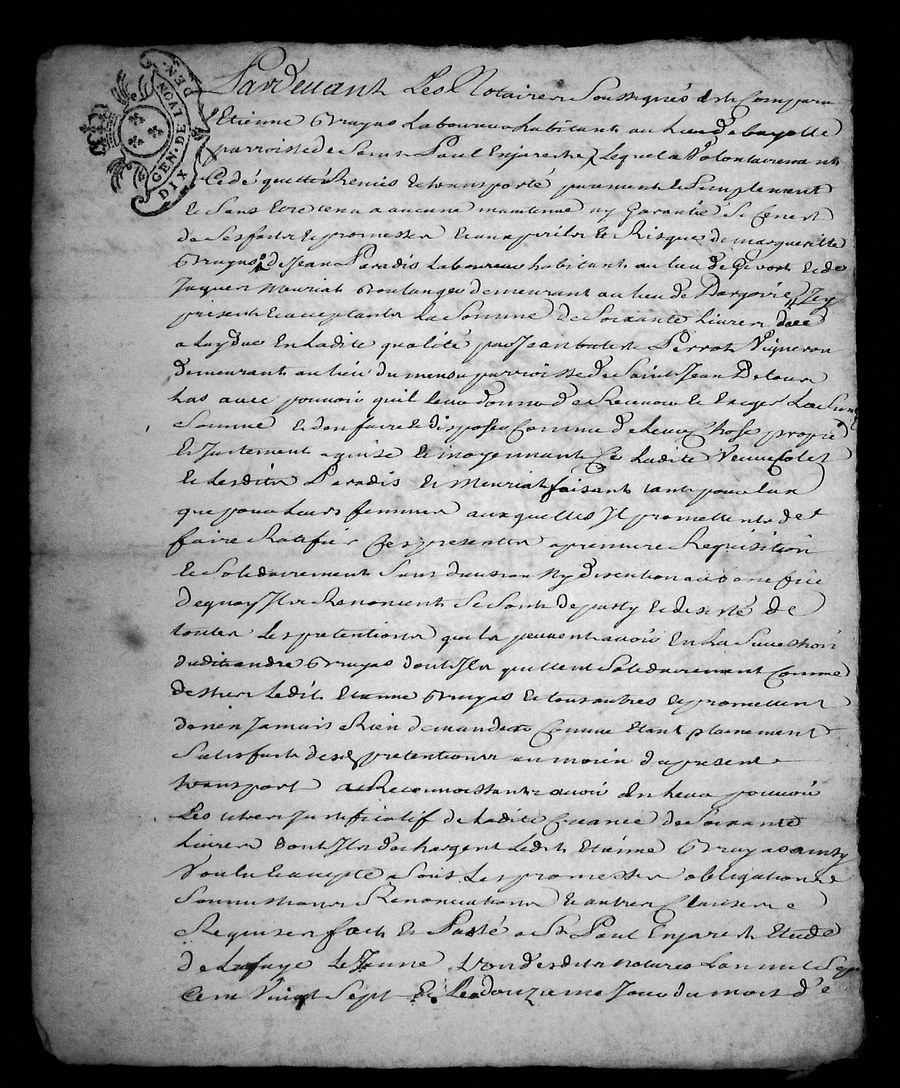 GEN. DE LYON
DIX DEN.
Pardevant Les Notaires Soussignés est Comparu
Etienne Gruyas Laboureur habitant au Lieu de bayolle
parroisse de Saint Paul Enjarest Lequel a Volontairemant
Cedé quitté Remis et transporté purement et Simplement
et Sans Etre tenu a aucune maintenue ny Garantie Si Ce nest
de Ses faits et promesses Et aux perils et Risques de margueritte
Gruyas de Jean Paradis Laboureur habitant au lieu de Givort et de
Jaques Meuriat Boulanger demeurant au lieu de Dargoire Jcy
presents et acceptants La Somme de Soixante Livres deüe
a Luy due En Ladite qualité par Jean Perrot Vigneron
demeurant au lieu du parroisse de Saint Jean De
has avec pouvoir quil leur donne de Recevoir et Exiger La
Somme et den faire et disposer Comme de Leur Chose propre
et Justement aquise et moyennant Ce Ladite Veuve
et Lesdits Paradis et Meuriat faisants tant pour Eux
que pour Leurs femmes auxquelles Jls promettents de
faire Ratifier Ces presentes a premiere Requisition
et Solidairement Sans division Ny discution au benefice
Dequoy Jls Renoncents Se Sont departy et desisté de
toutes Les pretentions quils peuvent avoir En La Succession
dudit andre Gruyas dont Jls quittent Solidairement Comme
dessus Ledit Etienne Gruyas et tous autres et promettent
de nen Jamais Rien demander Comme Etant plainement
Satisfaits des pretentions au moien du present
transport Reconnoissants avoir En Leur pouvoir
Les titres Justificatif de Ladite Creance de Soixante
Livres dont Jls dechargent Ledit Etienne Gruyas ainsy
Voulu et accepté Sous Les promesses obligations
Soumissions Renonciations et autres Clauses
Requises fait et Passé a St Paul Enjarest Etude
de Lafaye Le Jeune L'un desdits notaires Lan mil Sept
Cent Vingt Sept et Le douzieme Jour du mois de